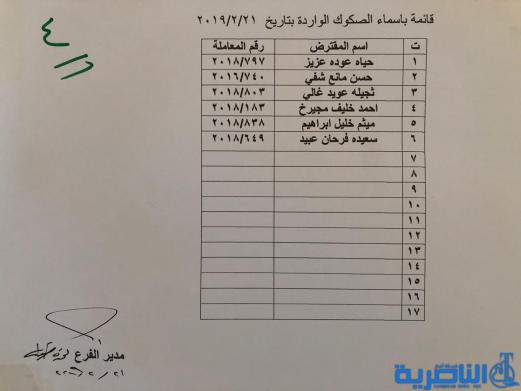 قائمة باسماء الصكوك الواردة بتاريخ ٢٠١٩/٢/٢١
ت اسم المقترض رقم المعاملة
١ حياه عوده عزيز ٢٠١٨/٧٩٧
٢ حسن مانع شفي ٢٠١٦/٧٤٠
٣ ثجيله عويد غالي ٢٠١٨/٨٠٣
٤ احمد خليف مجيرخ ٢٠١٨/١٨٣
٥ ميثم خليل ابراهيم ٢٠١٨/٨٣٨
٦ سعيده فرحان عبيد ٢٠١٨/٦٤٩
٧
٨
٩
١٠
١١
١٢
١٣
١٤
١٥
١٦
١٧
مدير الفرع
الناصرية